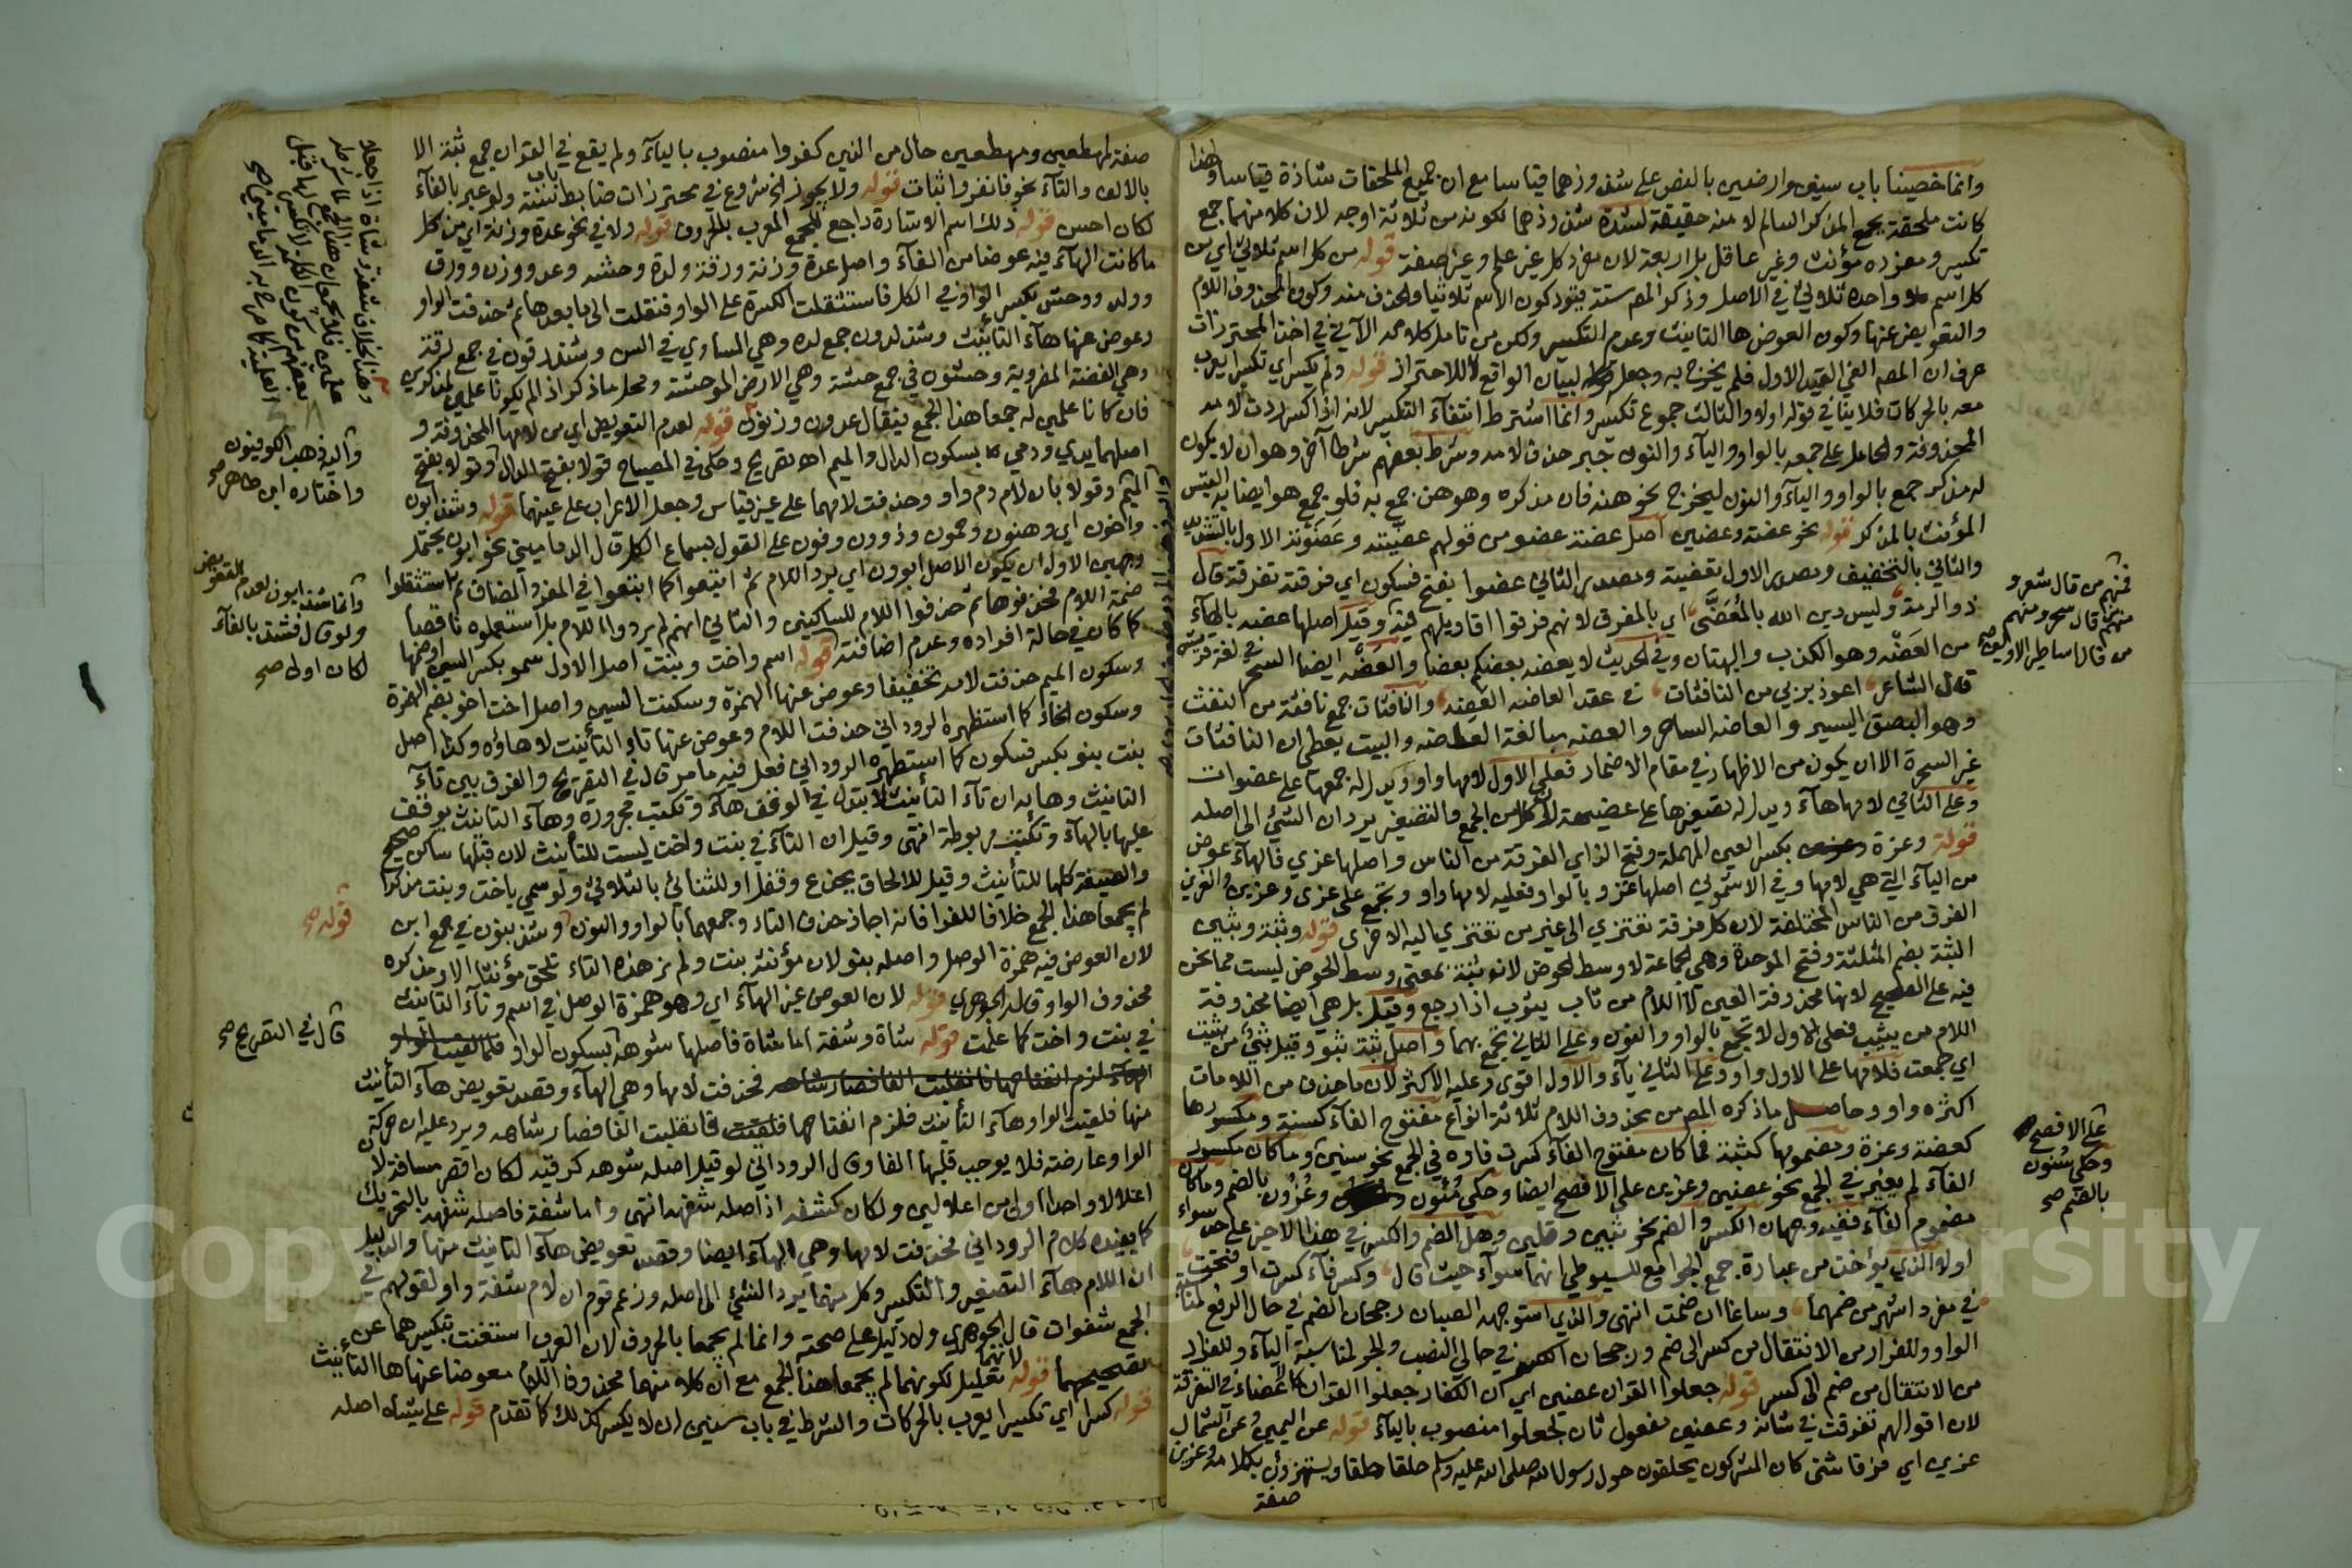 وانما خصيصنا باب سنين وارضين بالنص على شذوذهما قياسا مع ان جميع الملحقات شاذة قياسا ولهذا
كانت ملحقة بجمع المذكر السالم لا منه حقيقة لشدة شذوذهما لكونه من ثلاثة اوجه لان كلا منهما جمع
تكسير ومفرده مؤنث وغير عاقل بل اربعة لان مفرد كل غير علم وغير صفة قوله من كل اسم ثلاثي اي من
كل اسم واحده ثلاثي في الاصل وذكر المص ستة قيود كون الاسم ثلاثيا والحذف منه وكون المحذوف اللام
والتعويض عنها وكون العوض ها التانيث وعدم التكسير ولكن من تامل كلامه الآتي في اخذ المحترزات
عرف ان المص الغى القيد الاول فلم يخرج به وجعل لبيان الواقع لا للاحتراز قوله ولم يكسر اي تكسيرا يعرب
معه بالحركات فلا ينافي قوله اولا والثالث جموع تكسير وانما اشترط انتفاء التكسير لانه اذا كسر ردت لامه
المحذوفة والحامل على جمعه بالواو والياء والنون جبر حذف لامه وشرط بعضهم شرطا آخر وهو ان لا يكون
له مذكر جمع بالواو والياء والنون ليخرج نحو هنه فان مذكره وهو هن جمع به فلو جمع هو ايضا به التبس
المؤنث بالمذكر قوله نحو عضة وعضين اصل عضة عضو من قولهم عضيته وعضوته الاول بالتشديد
والثاني بالتخفيف ومصدر الاول تعضية ومصدر الثاني عضوا بفتح فسكون اي فرقته تفرقة قال
ذو الرمة وليس دين الله بالمُعَضَّى اي بالمفرق لانهم فرقوا اقاويلهم فيه وقيل اصلها عضه بالهاء
من العَضْه وهو الكذب والبهتان وفي الحديث لا يعضه بعضكم بعضا والعضه ايضا السحر في لغة قريش
قال الشاعر اعوذ بربي من النافثات في عقد العاضه العضه والنافثات جمع نافثة من النفث
وهو البصق اليسير والعاضه الساحر والعضه مبالغة العاضه والبيت يعطي ان النافثات
غير السحرة الا ان يكون من الاظهار في مقام الاضمار فعلى الاول لامها واو ويدل له جمعها على عضوات
وعلى الثاني لامها هاء ويدل له تصغيرها على عضيهة لان كلا من الجمع والتصغير يردان الشئ الى اصله
قوله وعزة بكسر العين المهملة وفتح الزاي الفرقة من الناس واصلها عزي فالهاء عوض
من الياء التي هي لامها وفي الاشموني اصلها عزو بالواو فعليه لامها واو وتجمع على عزى وعزين والعزين
الفرق من الناس المختلفة لان كل فرقة تعتزي الى غير من تعتزي اليه الاخرى قوله وثبة وثبين
الثبة بضم المثلثة وفتح الموحدة وهي الجماعة لا وسط الحوض لان ثبة بمعنى وسط الحوض ليست مما نحن
فيه على الصحيح لانها محذوفة العين لا اللام من ثاب يثوب اذا رجع وقيل بل هي ايضا محذوفة
اللام من يثيب فعلى الاول لا تجمع بالواو والنون وعلى الثاني تجمع بهما واصل ثبة ثبو وقيل ثبي من ثبيت
اي جمعت فلامها على الاول واو وعلى الثاني ياء والاول اقوى وعليه الاكثر لان ما حذف من اللامات
اكثره واو وحاصل ما ذكره المص من محذوف اللام ثلاثة انواع مفتوح الفاء كسنة ومكسورها
كعضة وعزة ومضمومها كثبة فما كان مفتوح الفاء كسرت فاؤه في الجمع نحو سنين وما كان مكسور
الفاء لم يغير في الجمع نحو عضين وعزين على الافصح ايضا وحكي مُئون وعُزُون بالضم وما كان
مضموم الفاء ففيه وجهان الكسر والضم نحو ثبين وقلين وهل الضم والكسر في هذا الاخير على حد سواء
اولا الذي يؤخذ من عبارة جمع الجوامع للسيوطي انهما سواء حيث قال وكسر فاء كسرت او فتحت
في مفرد اشهر من ضمهما وساغا ان ضمت انتهى والذي استوجهه الصبان رجحان الضم في حال الرفع لمناسبة
الواو وللفرار من الانتقال من كسر الى ضم ورجحان الكسر في حالي النصب والجر لمناسبة الياء وللفرار
من الانتقال من ضم الى كسر قوله جعلوا القران عضين اي ان الكفار جعلوا القران كاعضاء في التفرقة
لان اقوالهم تفرقت في شانه وعضين مفعول ثان لجعلوا منصوب بالياء قوله عن اليمين وعن الشمال
عزين اي فرقا شتى كان المشركون يحلقون حول رسول الله صلى الله عليه وسلم حلقا حلقا ويستهزؤن بكلامه وعزين
صفة
فمنهم من قال شعر و
منهم قال سحر ومنهم
من قال اساطير الاولين صح
على الافصح
وحكي سُنون
بالضم صح
صفة لمهطعين ومهطعين حال من الذين كفروا منصوب بالياء ولم يقع في القران جمع ثبة الا
بالالف والتاء نحو فانفروا ثبات قوله ولا يجوز الخ شروع في محترزات ضابط باب سنة ولو عبر بالفاء
لكان احسن قوله ذلك اسم الاشارة راجع للجمع المعرب بالحروف قوله ولا في نحو عدة وزنة اي من كل
ما كانت الهاء فيه عوضا من الفاء واصل عدة وزنة ورقة ولدة وحشة وعد ووزن وورق
وولد ووحش بكسر الواو في الكل فاستثقلت الكسرة على الواو فنقلت الى ما بعدها ثم حذفت الواو
وعوض عنها هاء التانيث وشذ لدون جمع لده وهي المساوي في السن وشذ رقون في جمع لرقة
وهي الفضة المضروبة وحشون في جمع حشة وهي الارض الموحشة ومحل ما ذكر اذا لم يكونا علمي لمذكرين
فان كانا علمين له جمعا هذا الجمع فيقال عدون وزنون قوله لعدم التعويض اي من لامها المحذوفة و
اصلهما يدي ودمي بسكون الدال والميم اه تصريح وحكى في المصباح قولا بفتح الدال وقولا بفتح
الميم وقولا بان لام دم واو وحذفت لامهما على غير قياس وجعل الاعراب على عينهما قوله وشذ ابون
واخون اي وهنون وحمون وذوون وفون على القول بسماع الكل قال الدماميني نحو ابون يحتمل
وجهين الاول ان يكون الاصل ابوون اي برد اللام ثم اتبعوا كما اتبعوا في المفرد المضاف ثم استثقلوا
ضمة اللام فحذفوها ثم حذفوا اللام للساكنين والثاني انهم لم يردوا اللام بل استعملوه ناقصا
كما كان في حالة افراده وعدم اضافته قوله اسم واخت وبنت اصل الاول سمو بكسر السين او ضمها
وسكون الميم حذفت لامه تخفيفا وعوض عنها الهمزة وسكنت السين واصل اخت اخو بضم الهمزة
وسكون الخاء كما استظهره الروداني حذفت اللام وعوض عنها تاء التانيث لا هاؤه وكذا اصل
بنت بنو بكسر فسكون كما استظهره الروداني فعل فيه ما مر قال في التصريح والفرق بين تاء
التانيث وهائه ان تاء التانيث لا تبدل في الوقف هاء وتكتب مجرورة وهاء التانيث يوقف
عليها بالهاء وتكتب مربوطة انتهى وقيل ان التاء في بنت واخت ليست للتانيث لان قبلها ساكن صحيح
والصيغة كلها للتانيث وقيل للالحاق بجذع وقفل او للثنائي بالثلاثي ولو سمي باخت وبنت مذكرا
لم يجمعا هذا الجمع خلافا للفراء فانه اجاز حذف التاء وجمعهما بالواو والنون وشذ بنون في جمع ابن
لان العوض فيه همزة الوصل واصله بنو لان مؤنثه بنت ولم نر هذه التاء تلحق مؤنثا الا ومذكره
محذوف الواو قاله الجوهري قوله لان العوض غير الهاء اي وهو همزة الوصل في اسم وتاء التانيث
في بنت واخت كما علمت قوله شاة وشفة اما شاة فاصلها شوهه بسكون الواو
فحذفت لامها وهي الهاء وقصد تعويض هاء التانيث
منها فلقيت الواو هاء التانيث فلزم انفتاحها فانقلبت الفا فصار شاهه ويرد عليه ان حركة
الواو عارضة فلا يوجب قلبها الفا وقال الروداني لو قيل اصله شوهه كرقبه لكان اقصر مسافة لان
اعلالا واحدا اولى من اعلالين ولكان كشفه اذ اصله شفهه انتهى واما شفة فاصله شفهه بالتحريك
كما يفيده كلام الروداني فحذفت لامها وهي الهاء ايضا وقصد تعويض هاء التانيث منها والدليل
ان اللام هاء التصغير والتكسير وكل منهما يرد الشئ الى اصله وزعم قوم ان لام شفة واو لقولهم في
الجمع شفوات قال الجوهري ولا دليل على صحته وانما لم يجمعا بالحروف لان العرب استغنت بتكسيرهما عن
تصحيحهما قوله لانهما تعليل لكونهما لم يجمعا هذا الجمع مع ان كلا منهما محذوف اللام معوضا عنها ها التانيث
قوله كسرا اي تكسيرا يعرب بالحركات والشرط في باب سنين ان لا يكسر كذلك كما تقدم قوله على شياه اصله
واليه ذهب الكوفيون
واختاره ابن طاهر صح
وانما شذ ابون لعدم التعويض
ولو قال فشذ بالفاء
لكان اولى صح
قوله صح
قال في التصريح صح